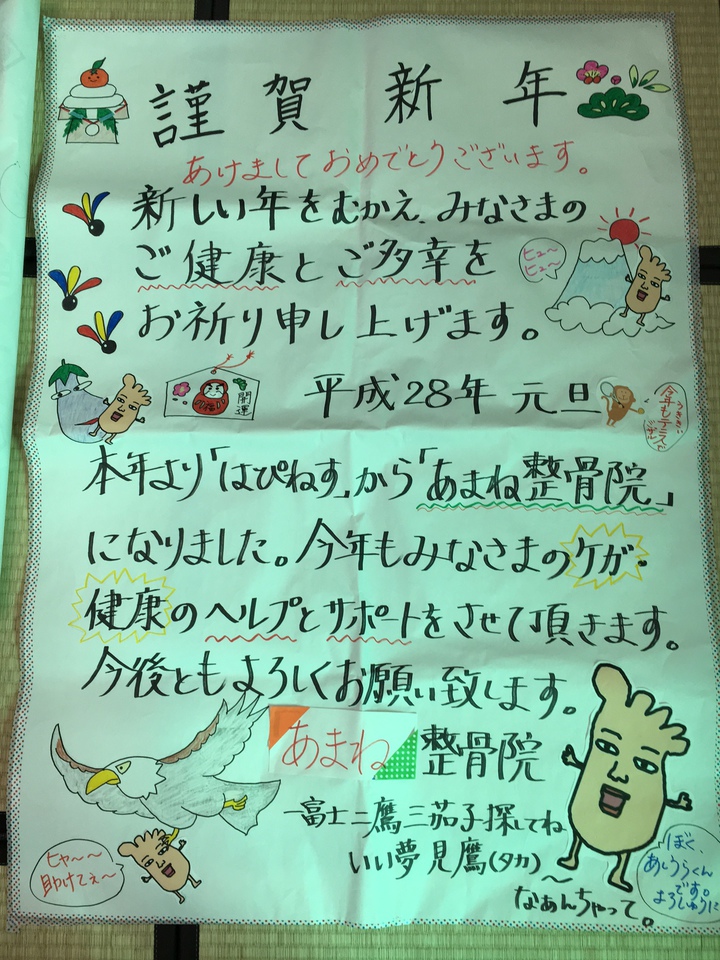 謹賀新年
あけましておめでとうございます。
新しい年をむかえ、みなさまの
ご健康とご多幸を
お祈り申し上げます。
ヒュ〜
ヒュ〜
開運
平成28年 元旦
うききぃ
今年もテニスで
本年より「はぴねす」から「あまね整骨院」
になりました。今年もみなさまのケガ・
健康のヘルプとサポートをさせて頂きます。
今後ともよろしくお願い致します。
あまね 整骨院
一富士二鷹三茄子探してね
いい夢見鷹(タカ)〜
なぁんちゃって。
ヒャ〜〜
助けてぇ〜
ぼく、
あしうらくん
です。
よろしゅうに